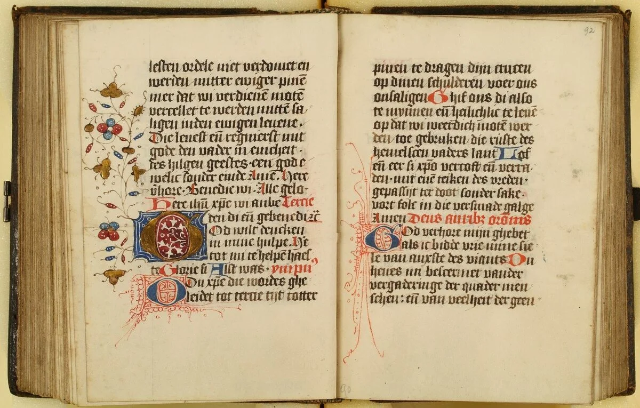 lesten ordele niet verdomet en
werden mitter ewiger pinen
mer dat wi verdienen moten
vertellet te werden mitten sa
ligen inden ewigen levene.
Die levest en regnierst mit
gode den vader in enicheit
des hilgen geestes een god e
welic sonder einde Amen. Here
vhore. Benedie wi. Alle gelo
Here ihu xpe wi anbe Tercie
den di en gebenedi
God wilt dencken
in mine hulpe. He
tot mi te helpe haest
te Glorie si Alst was. ympn
Du xpe die wordes ghe
leidet tot tercie tijt totter
92
pinen te dragen dijn cruce
op dinen schulderen voer ons
onsaligen Ghif ons di also
te mynnen en heilichlic te leven
op dat wi weerdich moten wer
den toe gebruken die ruste des
hemelscen vaders lant Lof
en eer si xpo vercoft en verra
den mit enen teken des vreden
gepassijt ter doot sonder sake
vort sole in die versmade galge
Amen Deus auribus
God verhore mijn ghebet
als ic bidde vrie mine sie
le van anxte des viants Du
heves mi bescermet vander
vergaderinge der quader men
schen: en van veelheit der geen